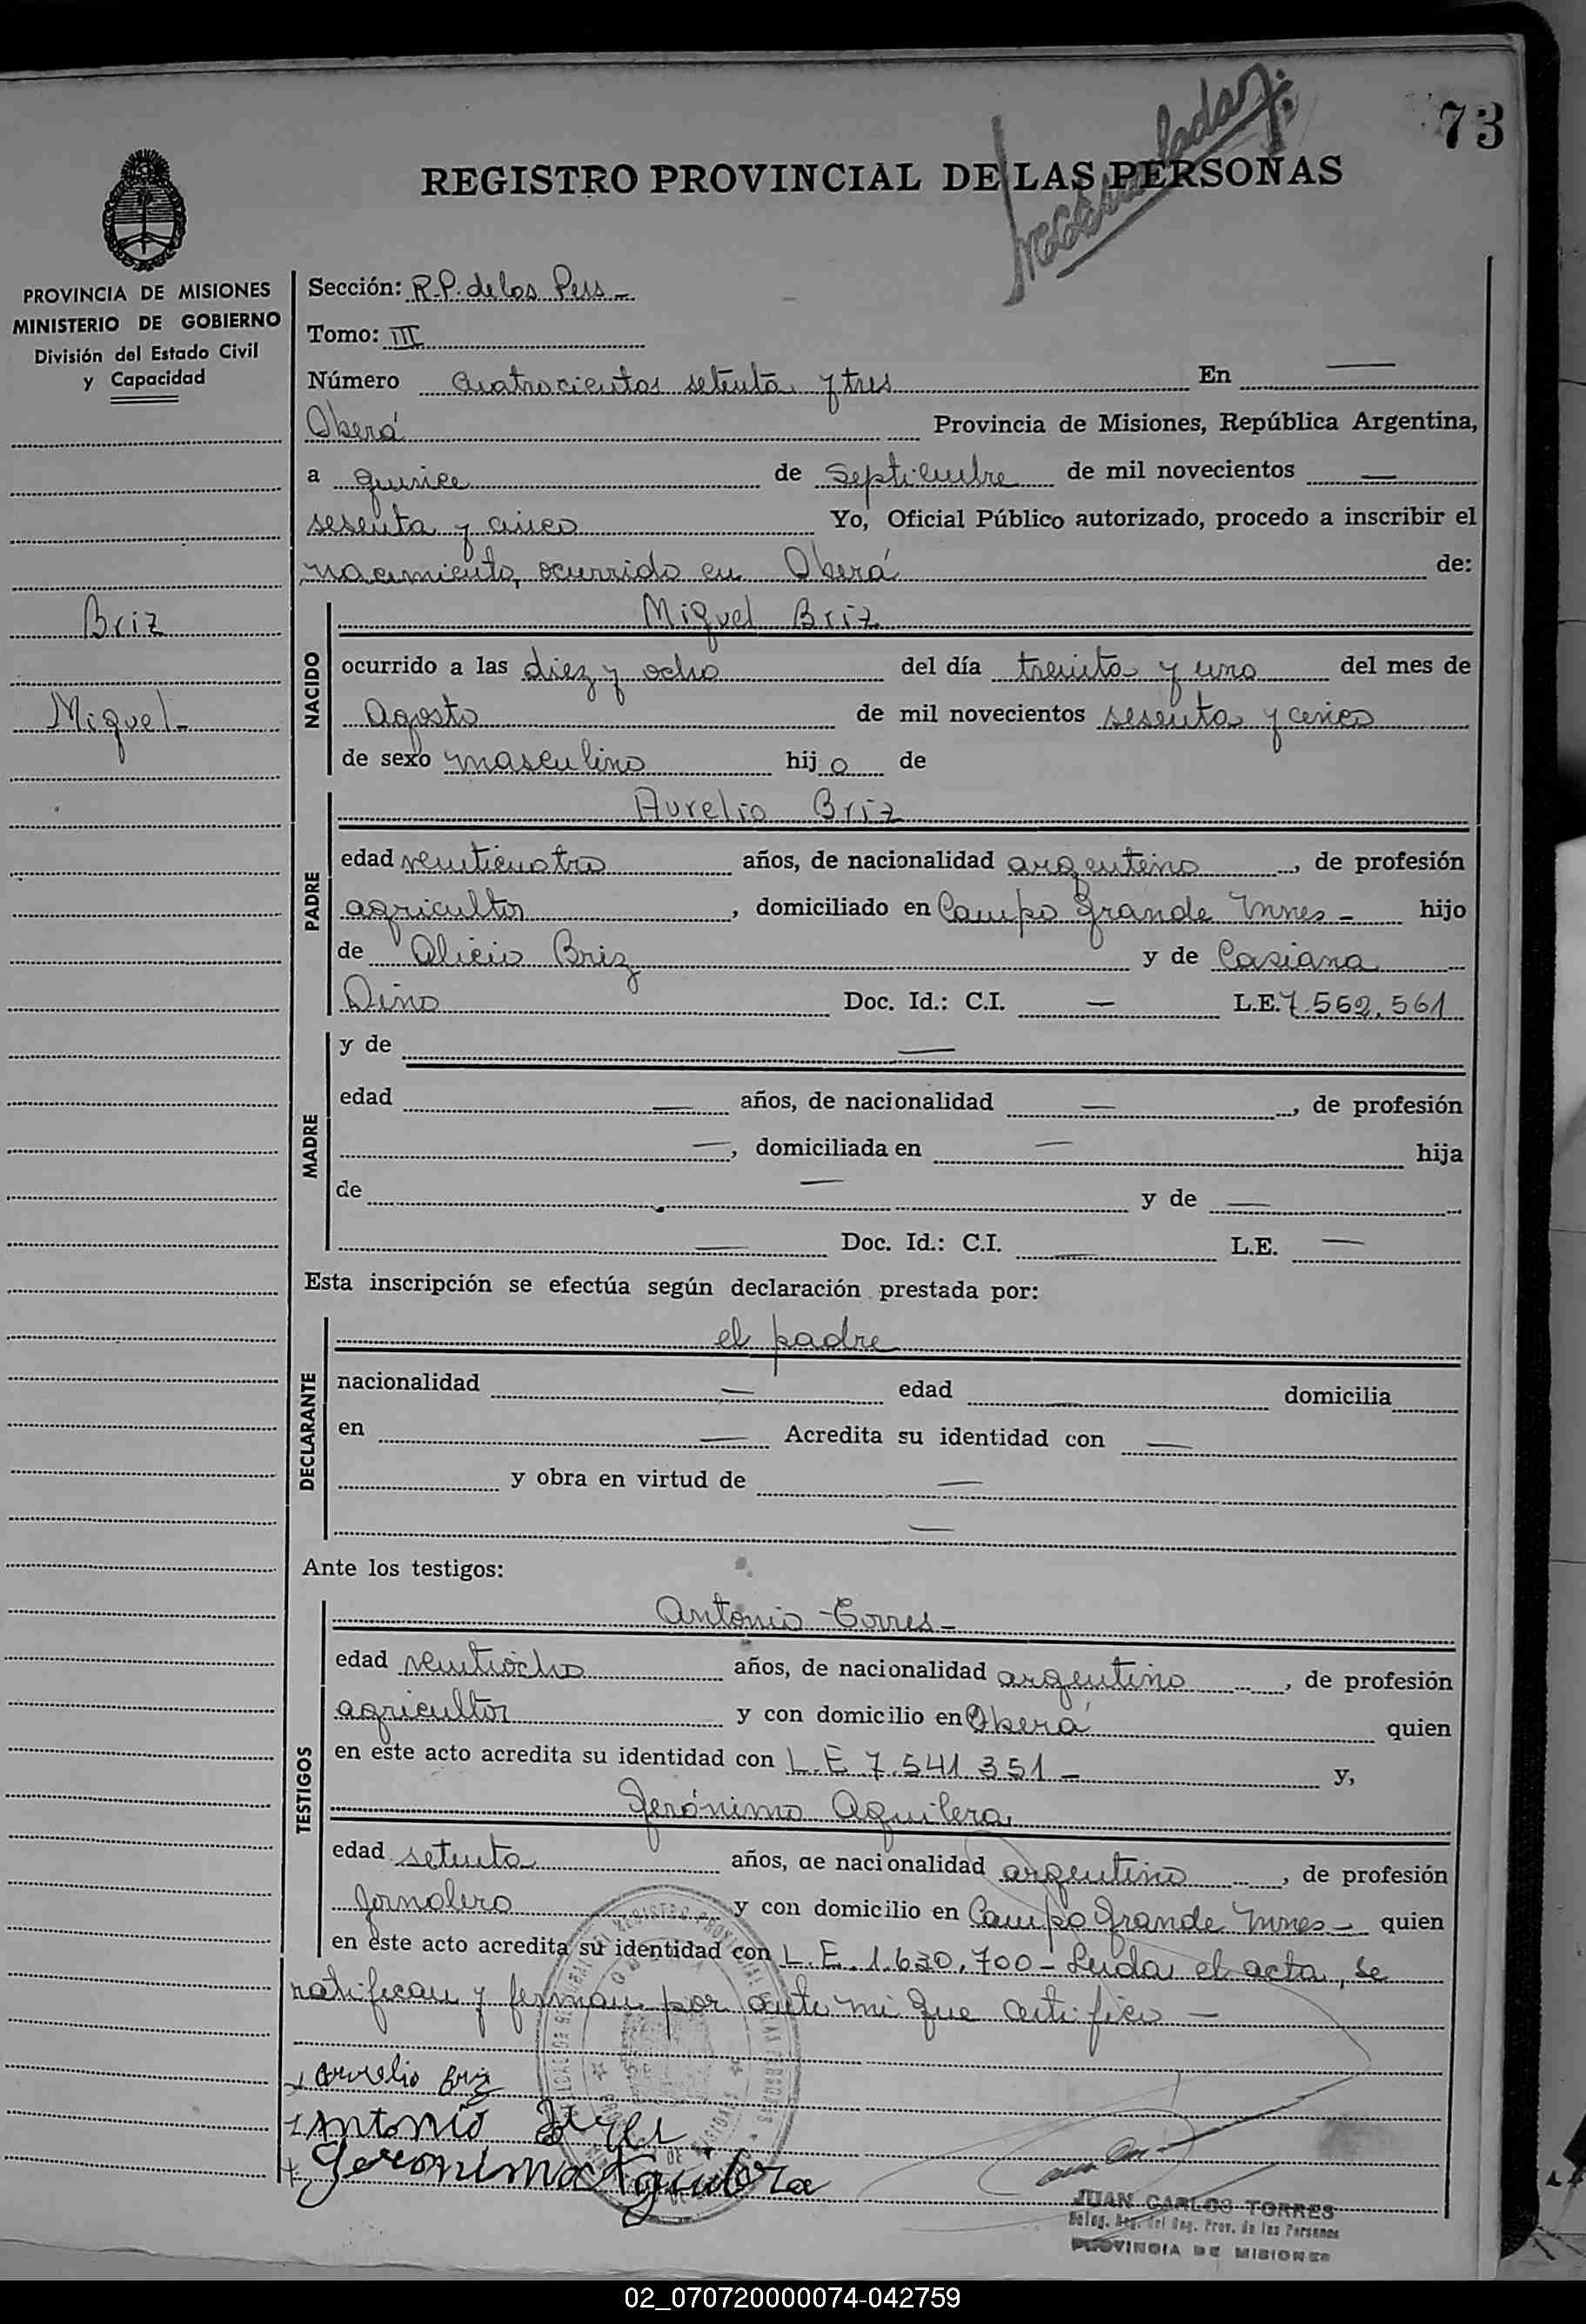 73
REGISTRO PROVINCIAL DE LAS PERSONAS
PROVINCIA DE MISIONES
MINISTERIO DE GOBIERNO
División del Estado Civil
y Capacidad
Briz
Miguel-
Sección: R.P. de los Pers -
Tomo: III
Número cuatrocientos setenta y tres En —
Oberá Provincia de Misiones, República Argentina,
a quince de septiembre de mil novecientos —
sesenta y cinco Yo, Oficial Público autorizado, procedo a inscribir el
nacimiento, ocurrido en Oberá de:
NACIDO
Miguel Briz
ocurrido a las diez y ocho del día treinta y uno del mes de
Agosto de mil novecientos sesenta y cinco
de sexo masculino hijo de
PADRE
Aurelio Briz
edad veinticuatro años, de nacionalidad argentino, de profesión
agricultor, domiciliado en Campo Grande Mnes - hijo
de Alicio Briz y de Casiana
Dino Doc. Id.: C.I. — L.E. 7.562.561
MADRE
y de —
edad — años, de nacionalidad —, de profesión
—, domiciliada en — hija
de — y de —
— Doc. Id.: C.I. — L.E. —
Esta inscripción se efectúa según declaración prestada por:
DECLARANTE
el padre
nacionalidad — edad — domicilia
en — Acredita su identidad con —
y obra en virtud de —
—
Ante los testigos:
TESTIGOS
Antonio Torres -
edad veintiocho años, de nacionalidad argentino, de profesión
agricultor y con domicilio en Oberá quien
en este acto acredita su identidad con L.E 7.541.351 - y,
Gerónimo Aguilera
edad setenta años, de nacionalidad argentino, de profesión
Jornalero y con domicilio en Campo Grande Mnes - quien
en este acto acredita su identidad con L.E. 1.630.700 - Leida el acta, se
ratifican y firman por ante mi que certifico —
Aurelio Briz
Antonio
Geronimo Aguilera
JUAN CARLOS TORRES
Deleg. Reg. del Reg. Prov. de las Personas
PROVINCIA DE MISIONES
02_070720000074-042759